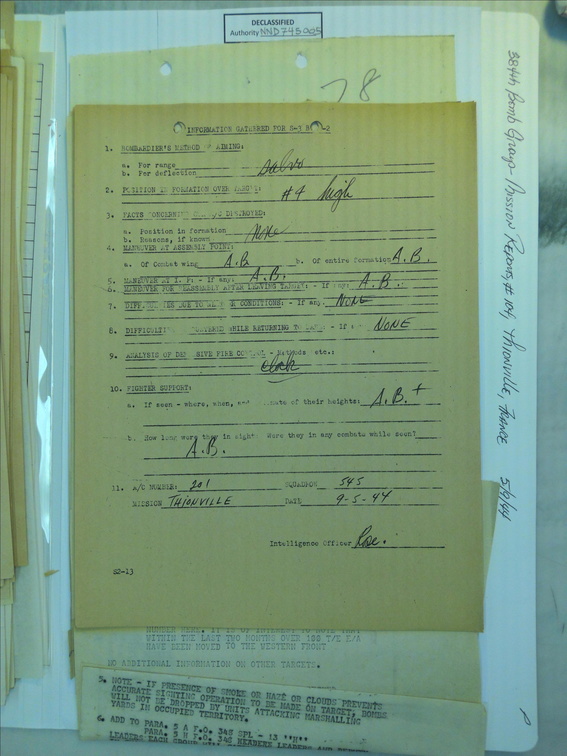 DECLASSIFIED
Authority NND745005
78
INFORMATION GATHERED FOR S-3 -2
1. BOMBARDIER'S METHOD OF AIMING:
a. For range
b. For deflection
salvo
2. POSITION IN FORMATION OVER TARGET: #4 high
3. FACTS CONCERNING DESTROYED:
a. Position in formation None
b. Reasons, if known
4. MANEUVER AT ASSEMBLY POINT:
a. Of Combat wing A.B. b. Of entire formation A.B.
5. MANEUVER AT I.P: - if any: A.B.
6. MANEUVER FOR REASSEMBLY AFTER LEAVING TARGET: - if any: A.B.
7. DUE TO CONDITIONS: - If any: NONE
8. WHILE RETURNING TO - if NONE
9. ANALYSIS OF FIRE CONTROL - Methods etc.:
clock
10. FIGHTER SUPPORT:
a. If seen - where, when, and of their heights: A.B. +
b. How long were they in sight Were they in any combats while seen?
A.B.
11. A/C NUMBER: 201 SQUADRON 545
MISSION THIONVILLE DATE 9-5-44
Intelligence Officer
S2-13
WITHIN THE LAST TWO MONTHS OVER 100 T/E E/A
HAVE BEEN MOVED TO THE WESTERN FRONT
NO ADDITIONAL INFORMATION ON OTHER TARGETS.
5. NOTE - IF PRESENCE OF SMOKE OR HAZE OR CLOUDS PREVENTS
ACCURATE SIGHTING OPERATION TO BE MADE ON TARGET, BOMBS
WILL NOT BE DROPPED BY UNITS ATTACKING MARSHALLING
YARDS IN OCCUPIED TERRITORY.
6. ADD TO PARA. 5 A F.O. 348 SPL - 13 "H"
384th Bomb Group - Mission Reports, #104, Thionville, France 5/9/44